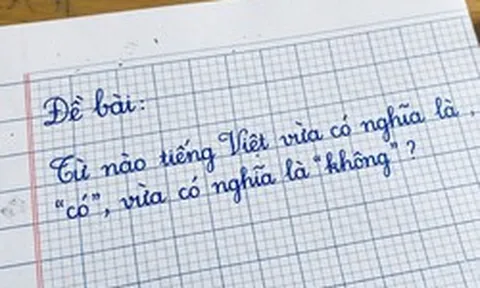 Đề bài:
Từ nào tiếng Việt vừa có nghĩa là
"có", vừa có nghĩa là "không"?